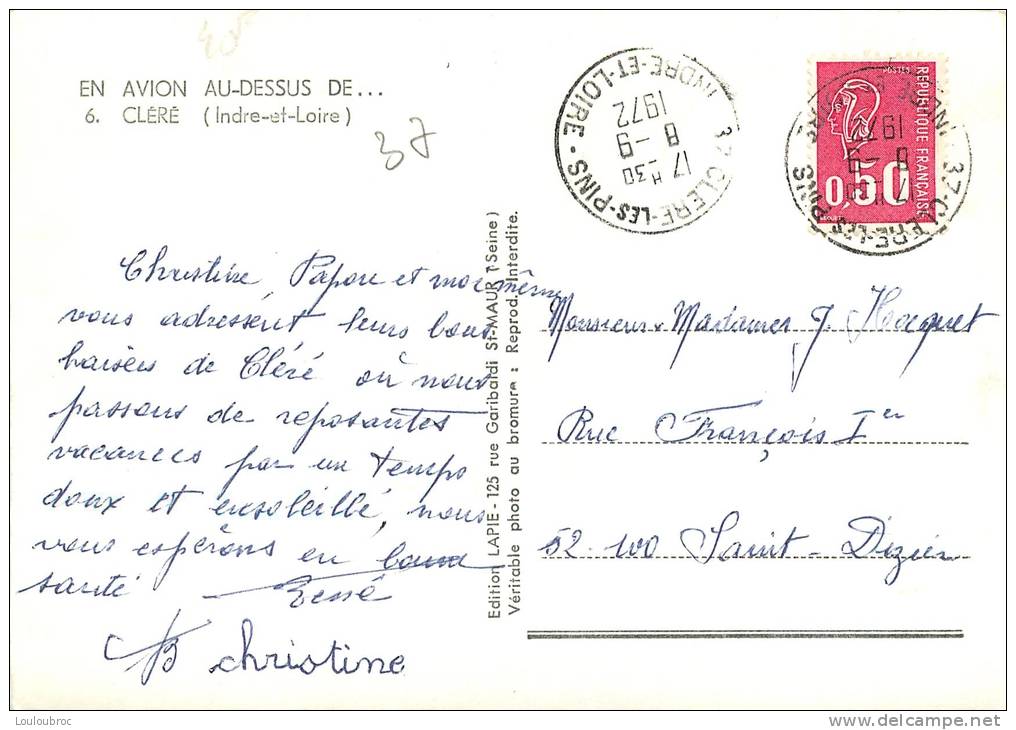 EN AVION AU-DESSUS DE...
6. CLÉRÉ (Indre-et-Loire)
37
Christine, Papou et moi même
vous adressent leurs bons
baisers de Cléré où nous
passons de reposantes
vacances par un temps
doux et ensoleillé, nous
vous espérons en bonne
santé
christine
Edition LAPIE - 125 rue Garibaldi St-MAUR (Seine)
Véritable photo au bromure : Reprod. Interdite.
37 CLERE-LES-PINS
INDRE-ET-LOIRE
17 H 30
8 - 9
1972
POSTES
REPUBLIQUE FRANÇAISE
0,50
37 CLERE-LES-PINS
17 H 30
8 - 9
1972
Monsieur & Madame J. Hocquet
Rue François Ier
52.100 Saint-Dizier
Louloubroc
www.delcampe.net